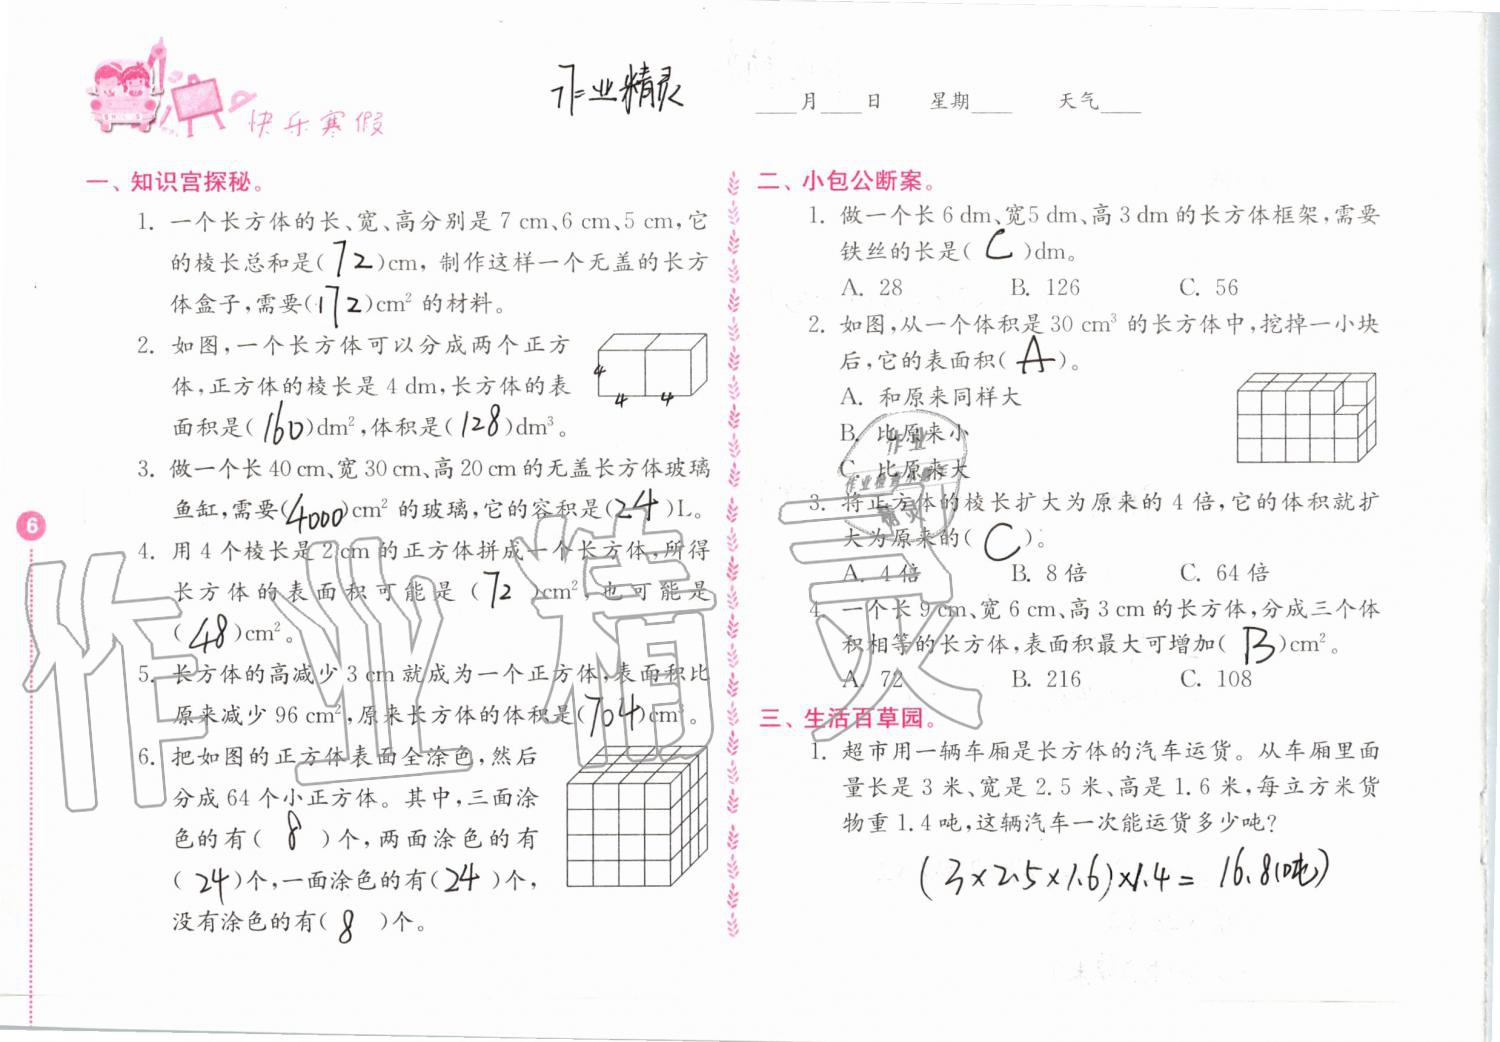 快乐寒假
作业精灵
____月____日 星期____ 天气____
一、知识宫探秘。
1. 一个长方体的长、宽、高分别是 7 cm、6 cm、5 cm,它
的棱长总和是(72)cm,制作这样一个无盖的长方
体盒子,需要(172)cm² 的材料。
2. 如图,一个长方体可以分成两个正方
体,正方体的棱长是 4 dm,长方体的表
面积是(160)dm²,体积是(128)dm³。
4
4 4
3. 做一个长 40 cm、宽 30 cm、高 20 cm 的无盖长方体玻璃
鱼缸,需要(4000)cm² 的玻璃,它的容积是(24)L。
4. 用 4 个棱长是 2 cm 的正方体拼成一个长方体,所得
长方体的表面积可能是(72)cm²,也可能是
(48)cm²。
5. 长方体的高减少 3 cm 就成为一个正方体,表面积比
原来减少 96 cm²,原来长方体的体积是(704)cm³。
6. 把如图的正方体表面全涂色,然后
分成 64 个小正方体。其中,三面涂
色的有(8)个,两面涂色的有
(24)个,一面涂色的有(24)个,
没有涂色的有(8)个。
6
二、小包公断案。
1. 做一个长 6 dm、宽5 dm、高 3 dm 的长方体框架,需要
铁丝的长是(C)dm。
A. 28 B. 126 C. 56
2. 如图,从一个体积是 30 cm³ 的长方体中,挖掉一小块
后,它的表面积(A)。
A. 和原来同样大
B. 比原来小
C. 比原来大
3. 将正方体的棱长扩大为原来的 4 倍,它的体积就扩
大为原来的(C)。
A. 4 倍 B. 8 倍 C. 64 倍
4. 一个长 9 cm、宽 6 cm、高 3 cm 的长方体,分成三个体
积相等的长方体,表面积最大可增加(B)cm²。
A. 72 B. 216 C. 108
三、生活百草园。
1. 超市用一辆车厢是长方体的汽车运货。从车厢里面
量长是 3 米、宽是 2.5 米、高是 1.6 米,每立方米货
物重 1.4 吨,这辆汽车一次能运货多少吨?
(3×2.5×1.6)×1.4= 16.8(吨)
作业精灵
作业
精灵